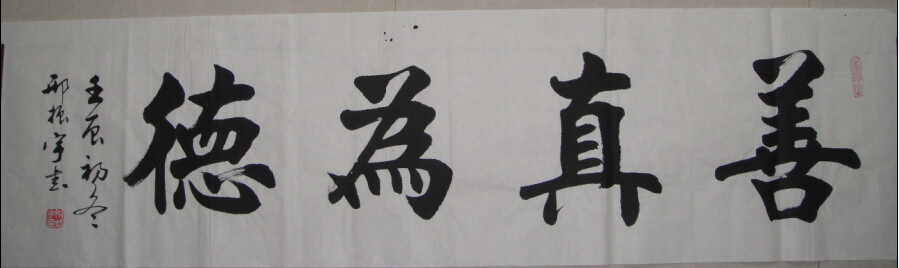 善真為德
壬辰初冬
邢振宇書